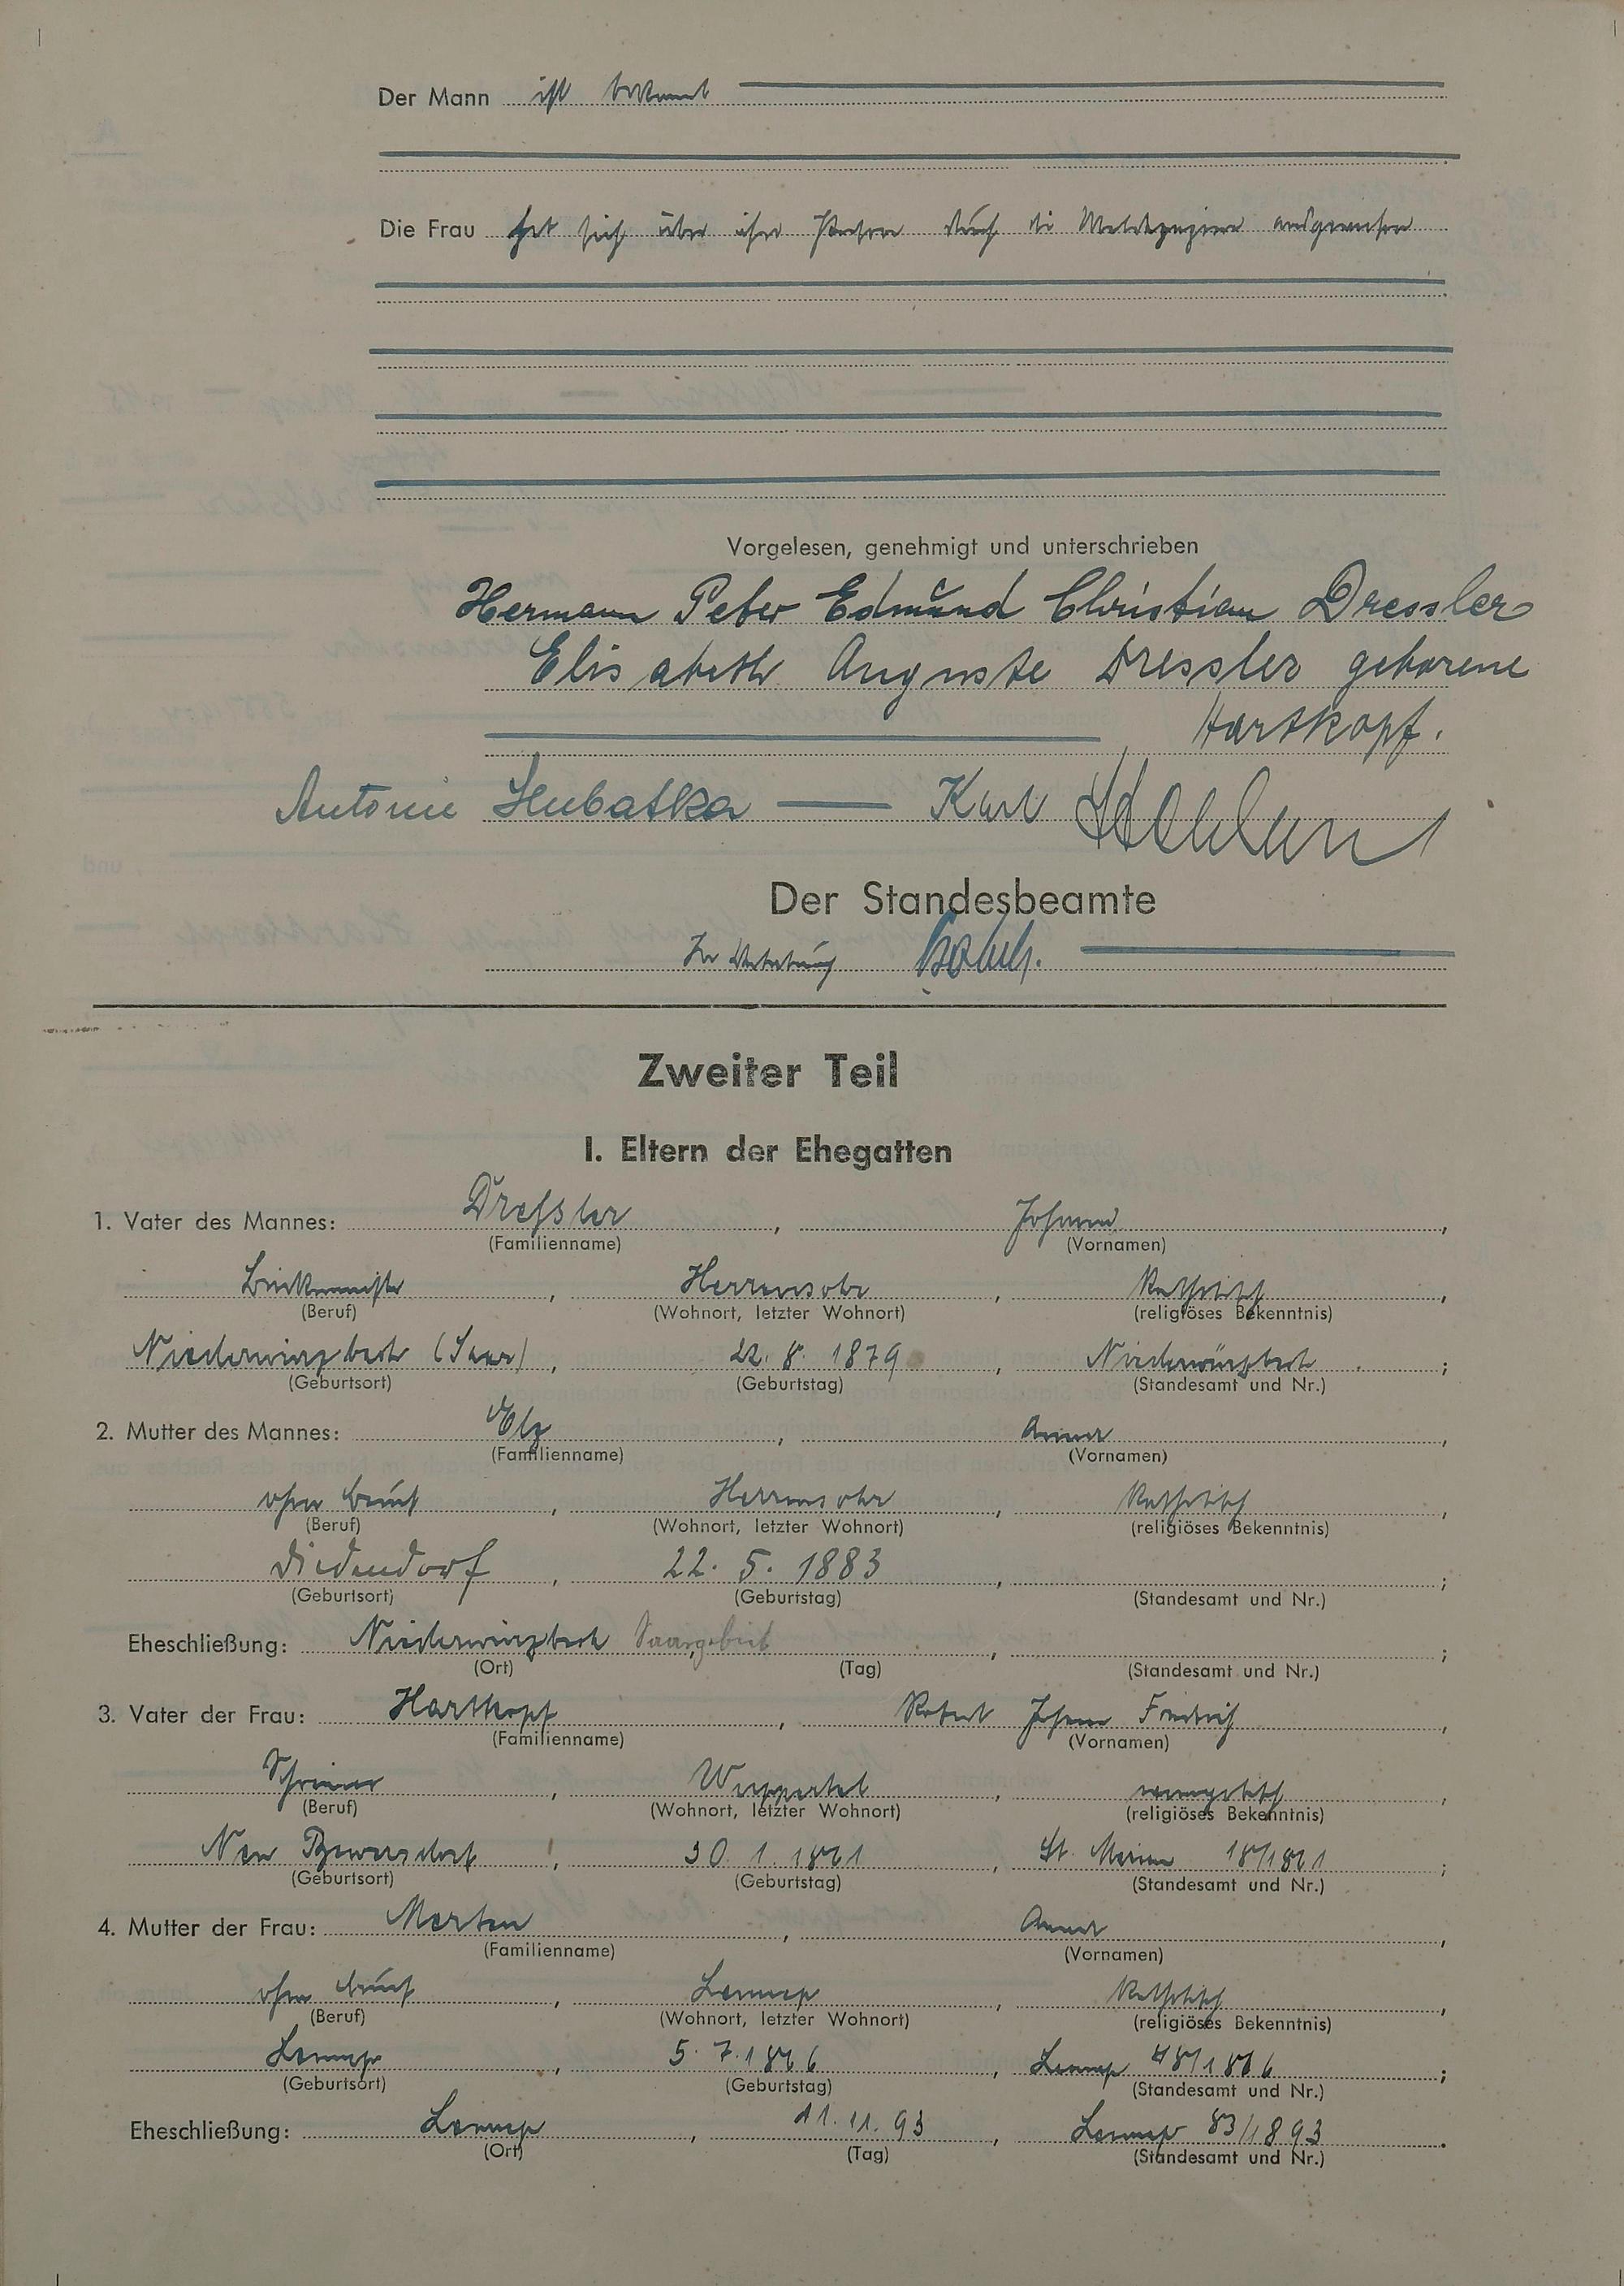 Der Mann ist bekannt
Die Frau hat sich über ihre Person durch die ausgewiesen
Vorgelesen, genehmigt und unterschrieben
Hermann Peter Edmund Christian Dressler
Elisabeth Auguste Dressler geborene
Hartkopf.
Antonie Hubatka — Karl
Der Standesbeamte
In Vertretung
Zweiter Teil
I. Eltern der Ehegatten
1. Vater des Mannes: Dreßler, Johann,
(Familienname) (Vornamen)
Herrensohr, katholisch,
(Beruf) (Wohnort, letzter Wohnort) (religiöses Bekenntnis)
Niederwürzbach (Saar), 22. 8. 1879, Niederwürzbach;
(Geburtsort) (Geburtstag) (Standesamt und Nr.)
2. Mutter des Mannes: Elz, Anna,
(Familienname) (Vornamen)
ohne Beruf, Herrensohr, katholisch,
(Beruf) (Wohnort, letzter Wohnort) (religiöses Bekenntnis)
Diedendorf, 22. 5. 1883, ;
(Geburtsort) (Geburtstag) (Standesamt und Nr.)
Eheschließung: Niederwürzbach Saargebiet, , ;
(Ort) (Tag) (Standesamt und Nr.)
3. Vater der Frau: Hartkopf, Robert Johann Friedrich,
(Familienname) (Vornamen)
Schreiner, Wuppertal, evangelisch,
(Beruf) (Wohnort, letzter Wohnort) (religiöses Bekenntnis)
Neu, 30. 1. 1871, St. 18/1871;
(Geburtsort) (Geburtstag) (Standesamt und Nr.)
4. Mutter der Frau: Merten, Anna,
(Familienname) (Vornamen)
ohne Beruf, Lennep, katholisch,
(Beruf) (Wohnort, letzter Wohnort) (religiöses Bekenntnis)
Lennep, 5. 7., Lennep;
(Geburtsort) (Geburtstag) (Standesamt und Nr.)
Eheschließung: Lennep, 11. 11. 93, Lennep 83/1893.
(Ort) (Tag) (Standesamt und Nr.)